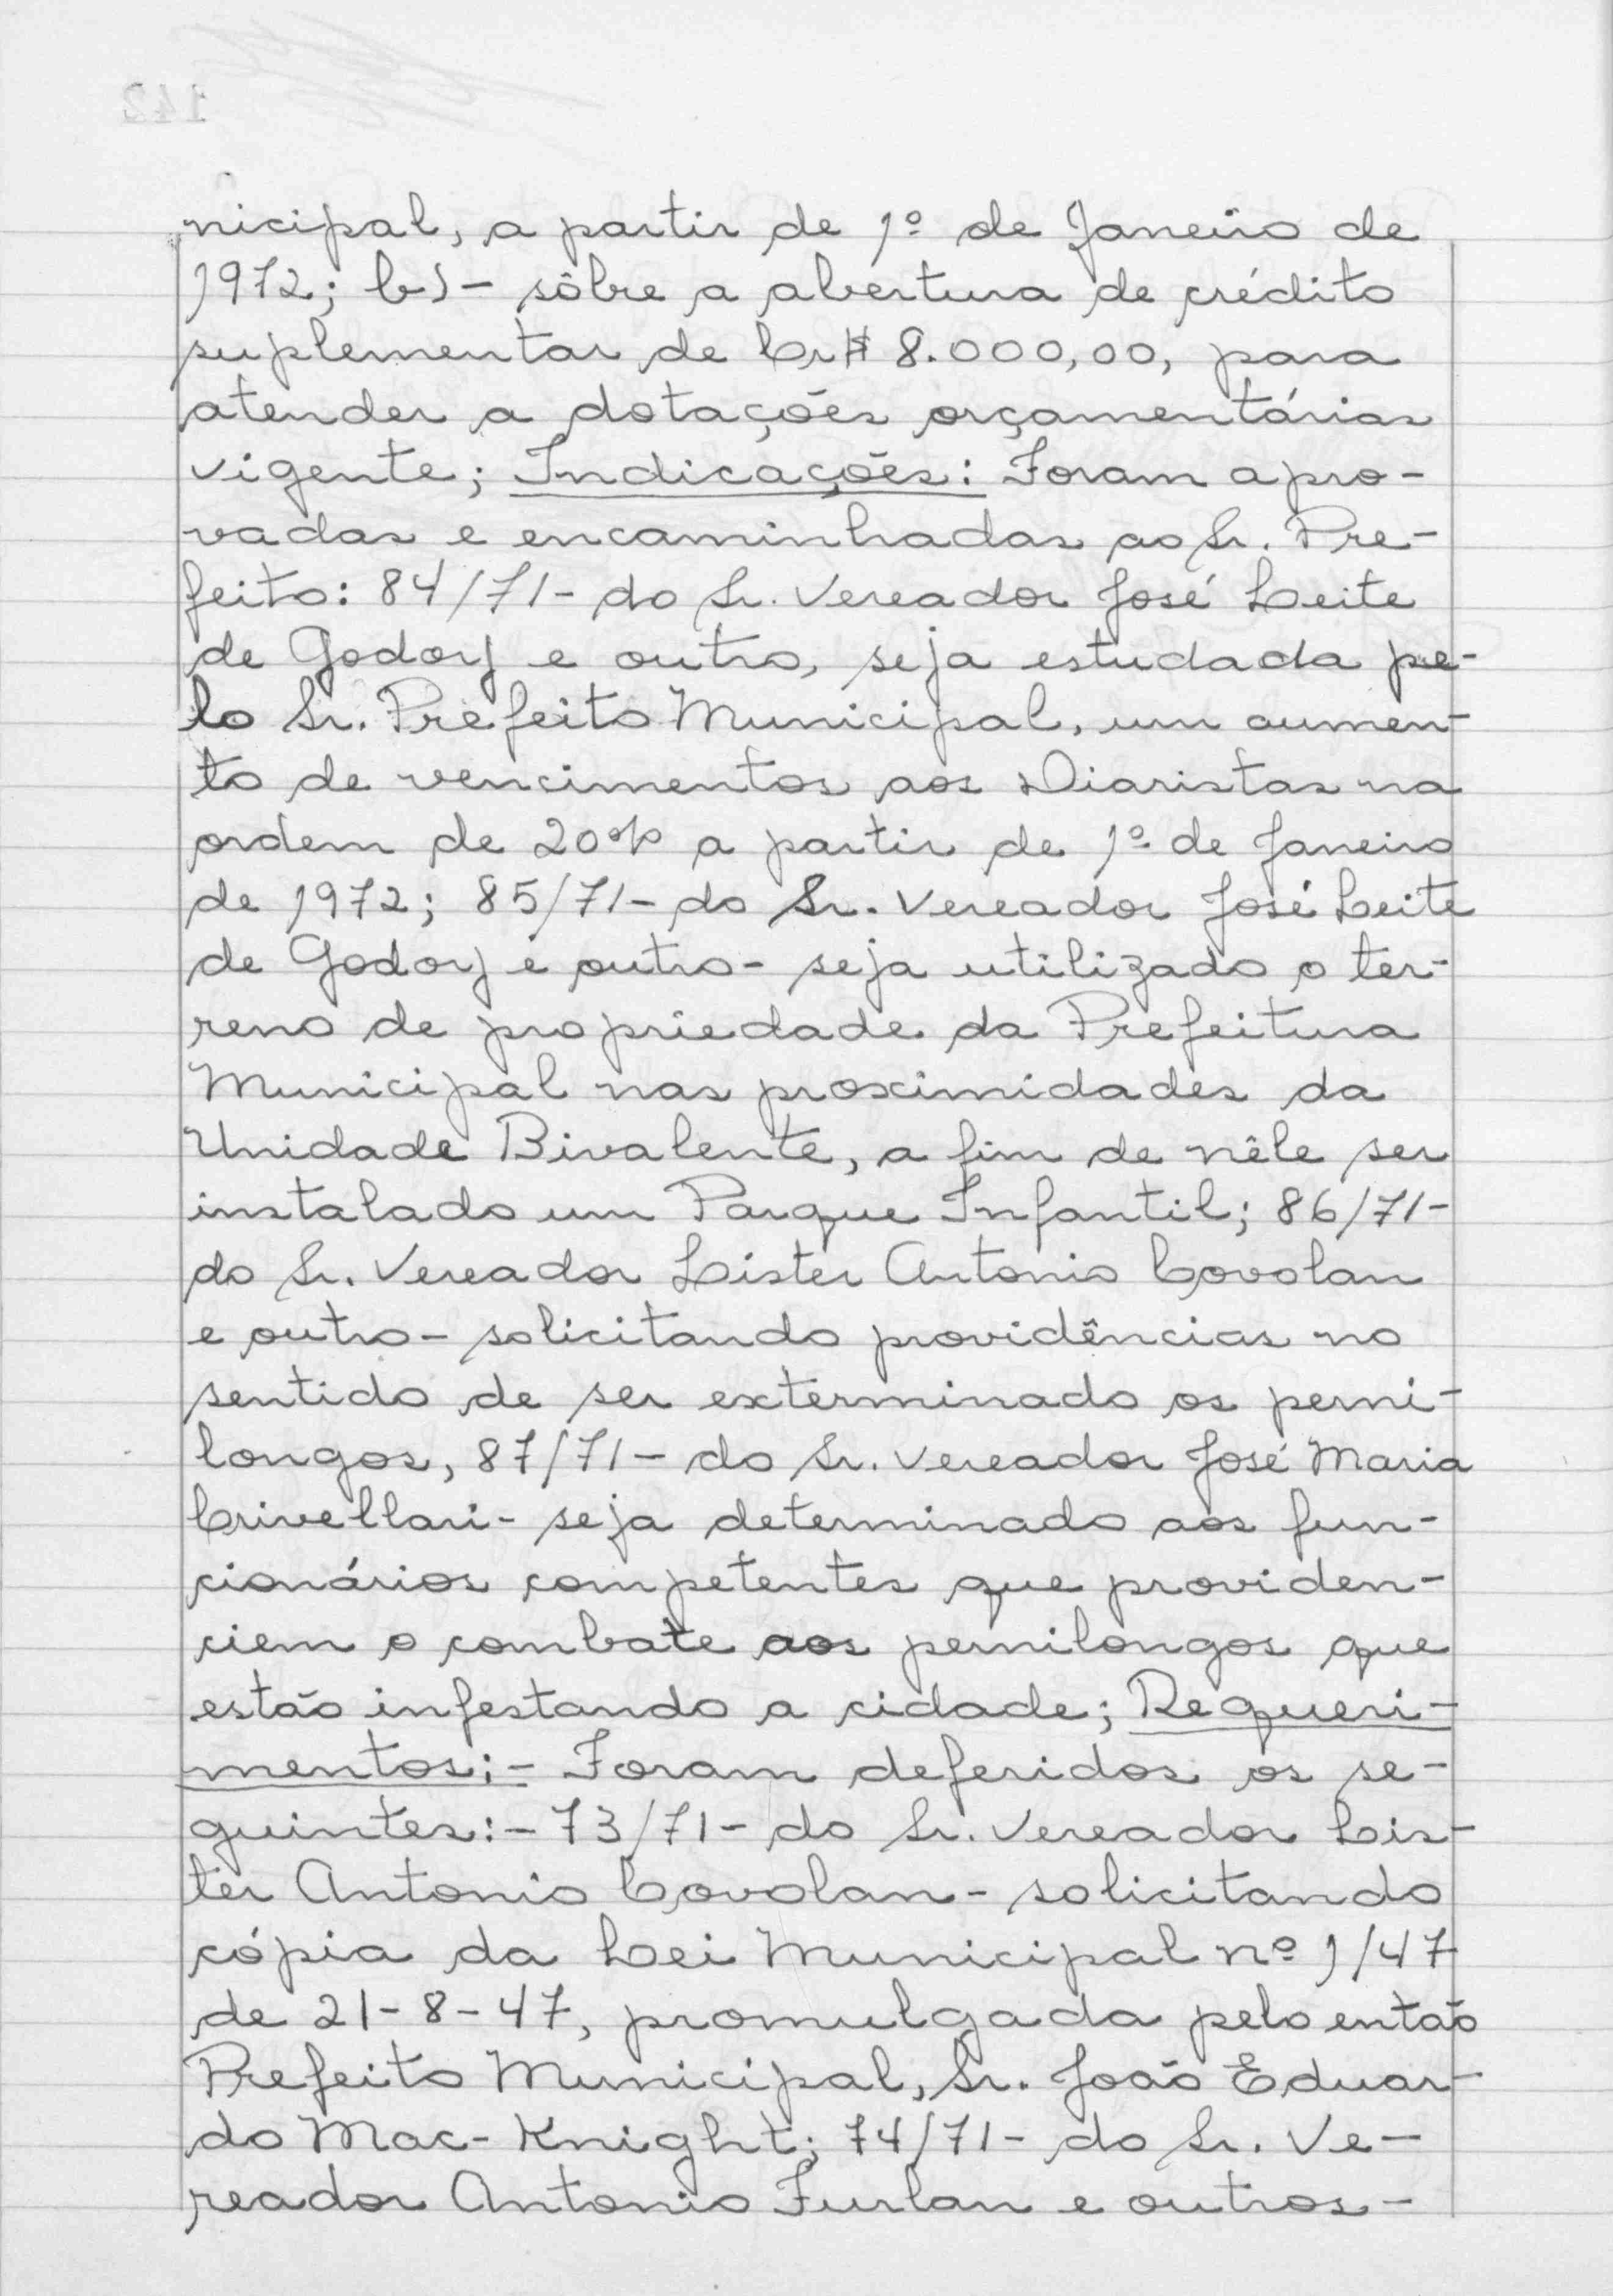 nicipal, a partir de 1º de Janeiro de
1972; b) - sôbre a abertura de crédito
suplementar de Cr$ 8.000,00, para
atender a dotações orçamentárias
vigente; Indicações: Foram apro-
vadas e encaminhadas ao Sr. Pre-
feito: 84/71- do Sr. Vereador José Leite
de Godoy e outro, seja estudada pe-
lo Sr. Prefeito Municipal, um aumen-
to de vencimentos aos Diaristas na
ordem de 20% a partir de 1º de Janeiro
de 1972; 85/71- do Sr. Vereador José Leite
de Godoy e outro- seja utilizado o ter-
reno de propriedade da Prefeitura
Municipal nas proximidades da
Unidade Bivalente, a fim de nêle ser
instalado um Parque Infantil; 86/71-
do Sr. Vereador Lister Antonio Covolan
e outro- solicitando providências no
sentido de ser exterminado os perni-
longos, 87/71- do Sr. Vereador José Maria
Crivellari- seja determinado aos fun-
cionários competentes que providen-
ciem o combate aos pernilongos que
estão infestando a cidade; Requeri-
mentos:- Foram deferidos os se-
guintes:- 73/71- do Sr. Vereador Lis-
ter Antonio Covolan- solicitando
cópia da Lei Municipal nº 1/47
de 21-8-47, promulgada pelo então
Prefeito Municipal, Sr. João Eduar-
do Mac-Knight; 74/71- do Sr. Ve-
reador Antonio Furlan e outros-